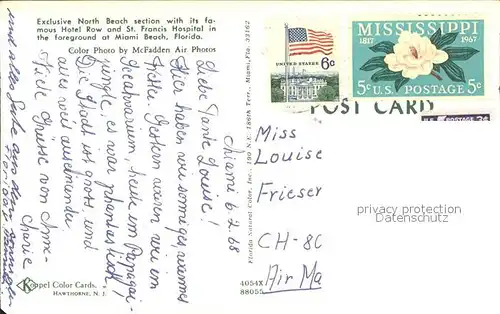 Exclusive North Beach section with its fa-
mous Hotel Row and St. Francis Hospital in
the foreground of Miami Beach, Florida.
Color Photo by McFadden Air Photos
Miami 6.2.68
Liebe Tante Louise!
Hier haben wir sonniges, warmes
Wetter. Gestern waren wir im
Seaquarium, heute im Papagei-
jungle, es war phantastisch!
Die Stadt ist gross und
alles weit auseinander.
Viele Grüsse von Anne-
Marie
und alles Gute aus dem sonnigen
Florida
Koppel Color Cards.
Hawthorne, N. J.
4054X
88055
Florida Natural Color, Inc., 100 N.E. 186th Terr., Miami, Fla. 33162
UNITED STATES 6c
MISSISSIPPI
1817 1967
5c U.S. POSTAGE 5c
POST CARD
Miss
Louise
Frieser
CH-80
Air Ma
privacy protection
Datenschutz